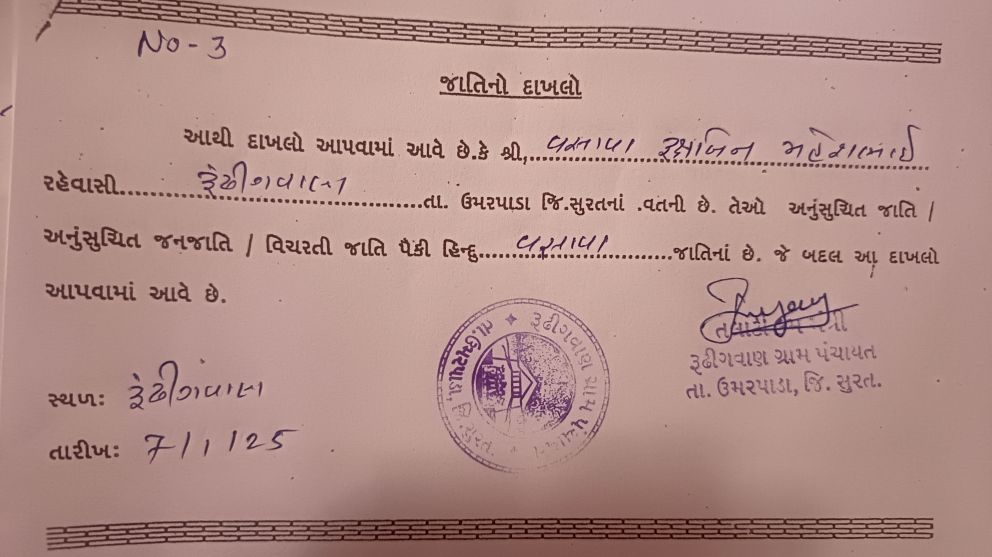 No - 3
જાતિનો દાખલો
આથી દાખલો આપવામાં આવે છે.કે શ્રી, વસાવા રક્ષાબેન મહેશભાઈ
રહેવાસી રૂઢીગવાણ તા. ઉમરપાડા જિ.સુરતનાં .વતની છે. તેઓ અનુંસુચિત જાતિ /
અનુંસુચિત જનજાતિ / વિચરતી જાતિ પૈકી હિન્દુ વસાવા જાતિનાં છે. જે બદલ આ દાખલો
આપવામાં આવે છે.
તલાટી કમ મંત્રી
રૂઢીગવાણ ગ્રામ પંચાયત
તા. ઉમરપાડા, જિ. સુરત.
રૂઢીગવાણ ગ્રામ પંચાયત તા. ઉમરપાડા, જિ. સુરત.
સ્થળઃ રૂઢીગવાણ
તારીખઃ 7/1/25